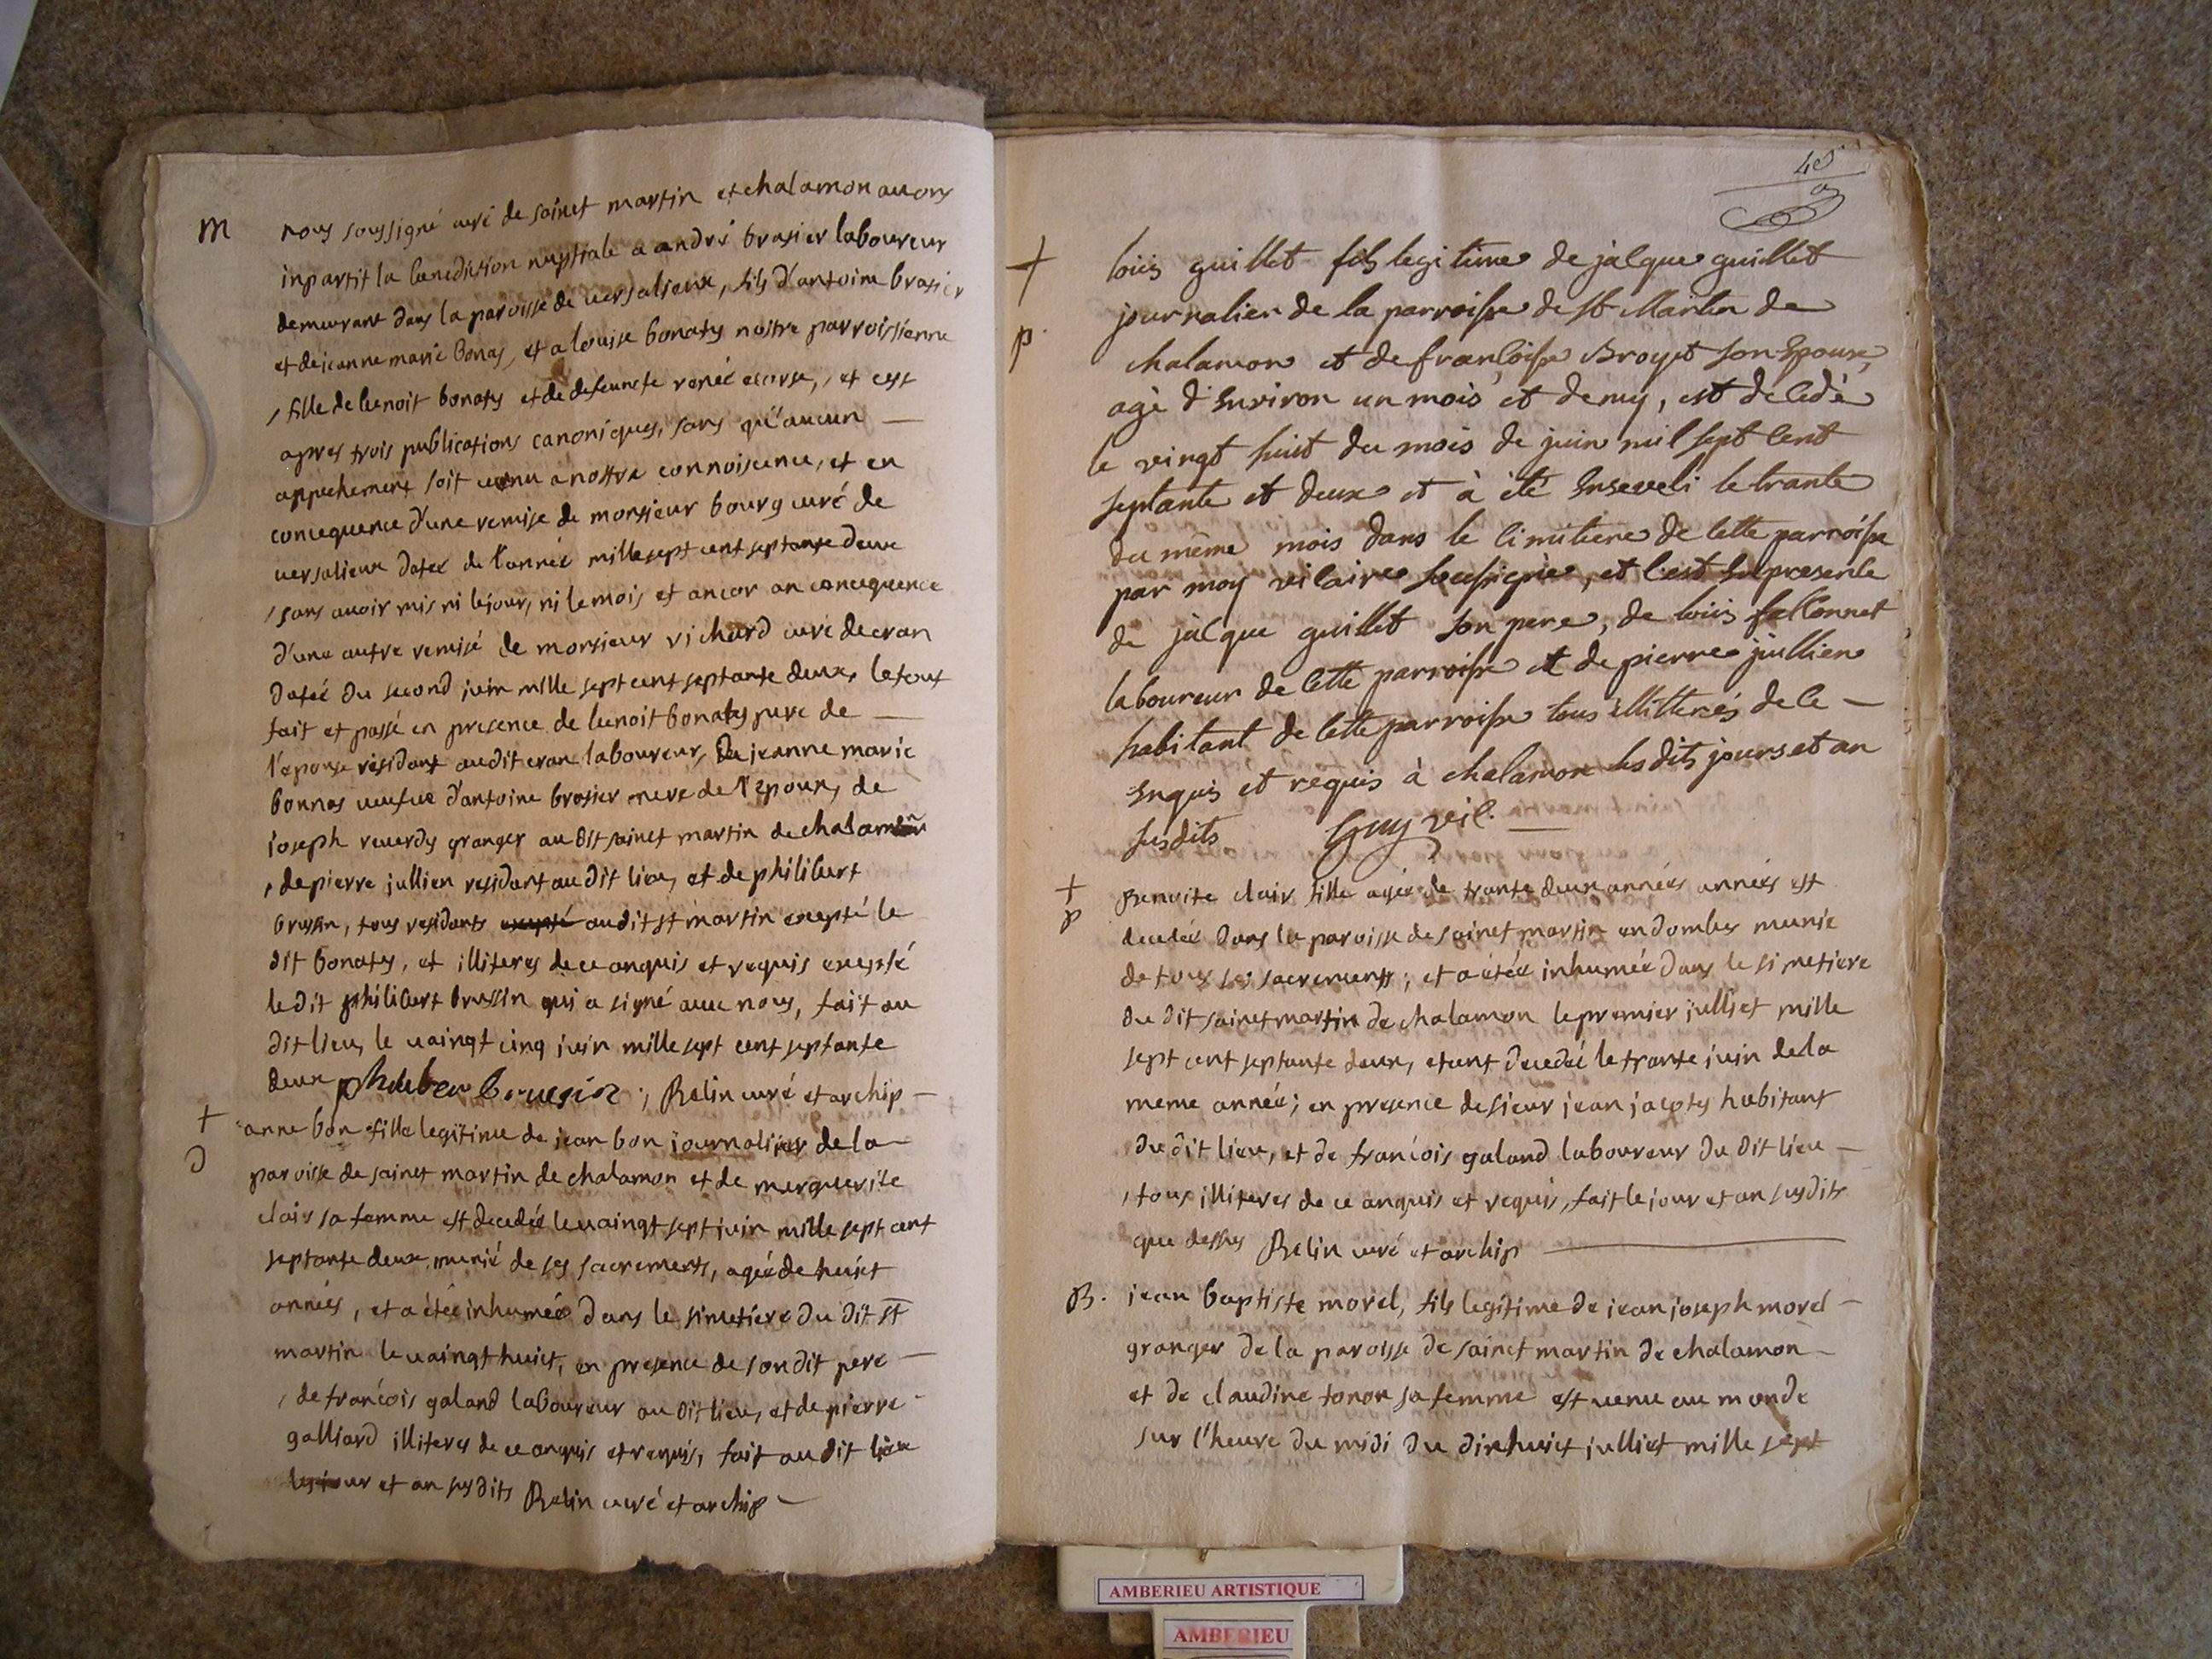 M
nous soussigné curé de sainct martin et chalamon avons
inpartit la benediction nuptiale a andré brasier laboureur
demeurant dans la paroisse de versalieux, fils d'antoine brasier
et de jeanne marie bonas, et a louise bonatys nostre parroissienne
, fille de benoit bonatys et de defeuncte renée escorse, et cest
apres trois publications canoniques, sans qu'aucun —
appechement soit venu a nostre connoisence, et en
consequence d'une remise de monsieur bourg curé de
versalieux datée de l'année mille sept cent septante deux
, sans avoir mis ni le jour, ni le mois et ancor an consequence
d'une autre remise de monsieur richard curé de cran
datée du second juin mille sept cent septante deux, le tout
fait et passé en presence de benoit bonatys pere de —
l'epouse résidant audit cran laboureur, de jeanne marie
bonnas veufve d'antoine brasier mere de l'epoux, de
joseph reverdy granger au dit sainct martin de chalamon
, de pierre jullien residant au dit lieu, et de philibert
brussin, tous residants excepté audit st martin excepté le
dit bonatys, et illiteres de ce anquis et requis excepté
le dit philibert brussin qui a signé avec nous, fait au
dit lieu, le vaingt cinq juin mille sept cent septante
deux phileber brucsin ; Relin curé et archip —
+
D
anne bon fille legitime de jean bon journalier de la —
paroisse de sainct martin de chalamon et de marguerite
clair sa femme est decedée le vaingt sept juin mille sept cent
septante deux munie de ses sacrements, agée de huict
années, et a étée inhumée dans le simetiére du dit st
martin le vaingt huict, en presence de son dit pere —
, de francois galand laboureur au dit lieu, et de pierre
galliard illiteres de ce anquis et requis, fait au dit lieu
les jour et an susdits Relin curé et archip —
+
p
loüis guillet fils legitime de jacque guillet
journalier de la parroisse de st Martin de
chalamon et de francoise Broyet son Epouse,
agé d'Environ un mois et demy, est decedé
le vingt huit du mois de juin mil sept cent
septante et deux et à été Enseveli le trante
du même mois dans le cimitiere de cette parroisse
par moy vicaire soussigné, et c'est En presence
de jacque guillet son pere, de loüis fallonnet
laboureur de cette parroisse et de pierre jullien
habitant de cette parroisse tous illitterés de ce —
Enquis et requis à chalamon lesdits jours et an
susdits Guy vic. —
+
p
Benoite clair fille agée de trante deux années années est
decedée dans la paroisse de sainct martin en dombes munie
de tous ses sacrements ; et a étée inhumée dans le simetiere
du dit sainct martin de chalamon le premier julliet mille
sept cent septante deux, etant decedée le trante juin de la
meme année ; en presence de sieur jean jacotys habitant
du dit lieu, et de francois galand laboureur du dit lieu —
, tous illiteres de ce anquis et requis, fait le jour et an susdits
que dessus Relin curé et archip —
B.
jean baptiste morel, fils legitime de jean joseph morel —
granger de la paroisse de sainct martin de chalamon —
et de claudine tonon sa femme est venu au monde
sur l'heure du midi du dixhuict julliet mille sept
AMBERIEU ARTISTIQUE
AMBERIEU